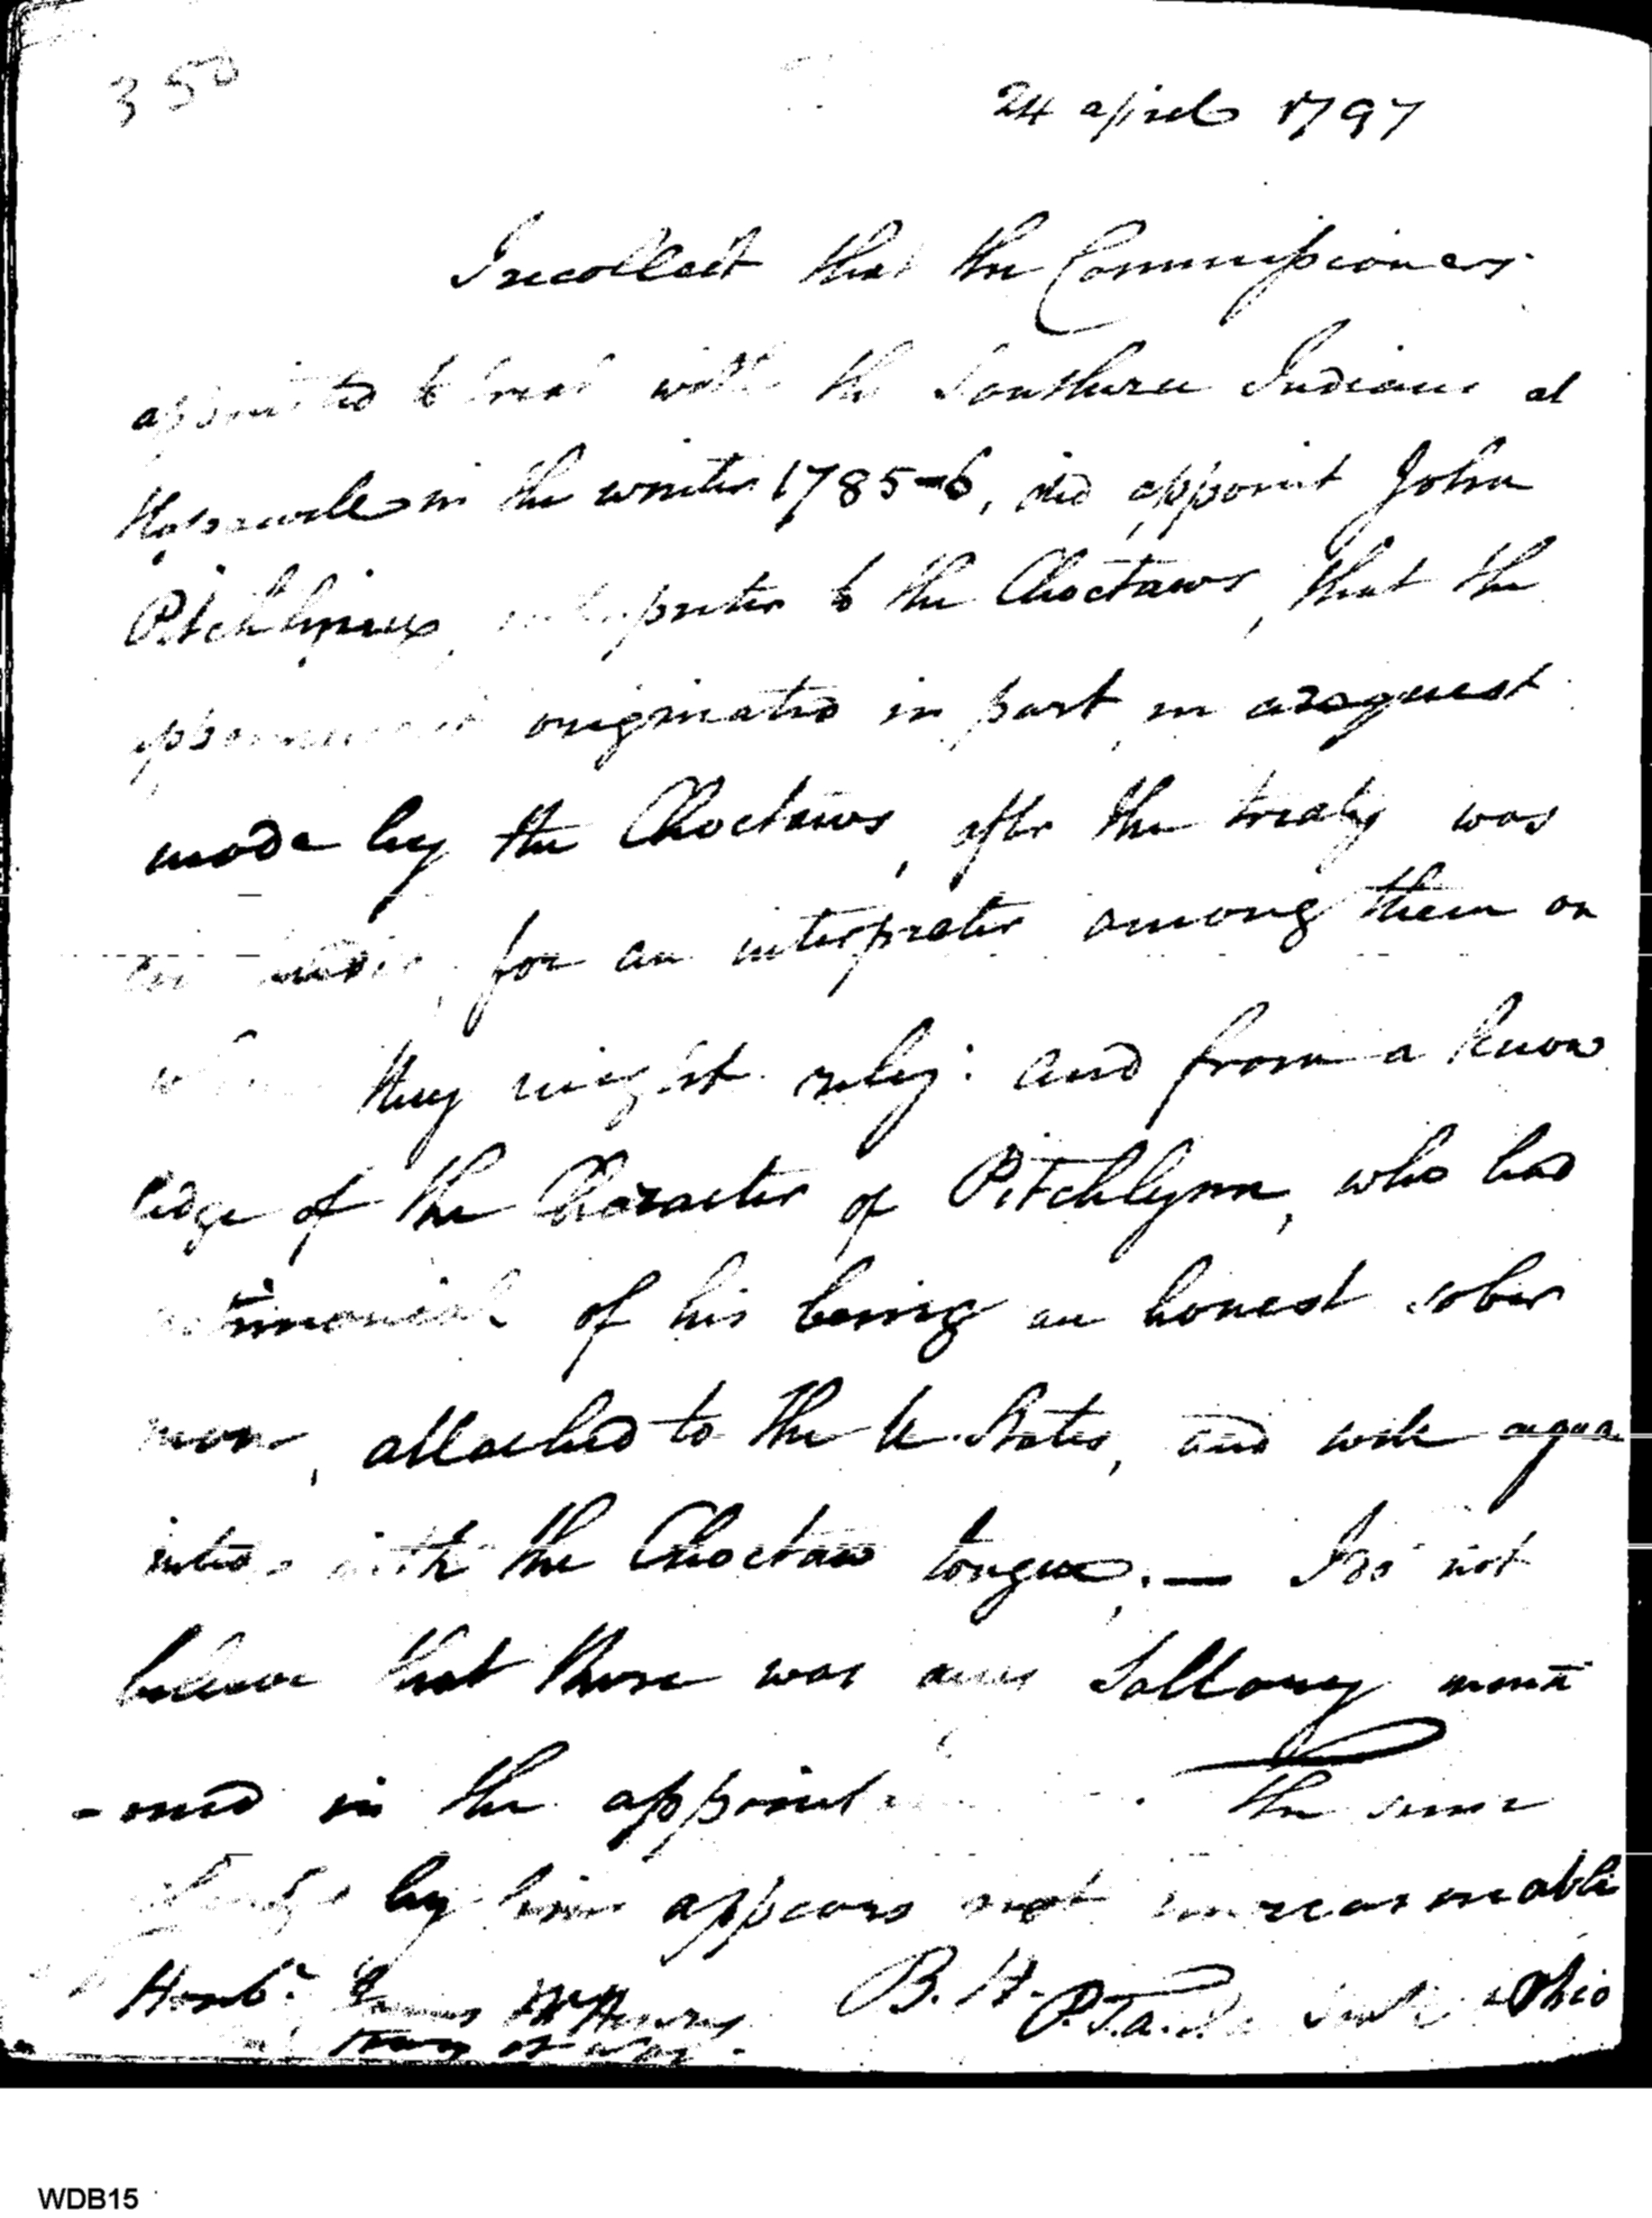 350
24 april 1797
I recollect that the Commissioners
appointed to treat with the Southern Indians at
Hopewell in the winter 1785-6, did appoint John
Pitchlynn, interpreter to the Choctaws, that the
appointment originated in part, in a request
made by the Choctaws, after the treaty was
for an interpreter among them on
whom they might rely: and from a know
ledge of the Character of Pitchlynn, who had
testimonials of his being an honest sober
man, attached to the U. States, and well aqua
inted with the Choctaw tongue. — I do not
believe that there was any Sallary menti
-oned in the appointment. The same
by him appears not unreasonable
Honbe. James McHenry B. H. P.T.a.I. Ohio
Secy of War.
WDB15